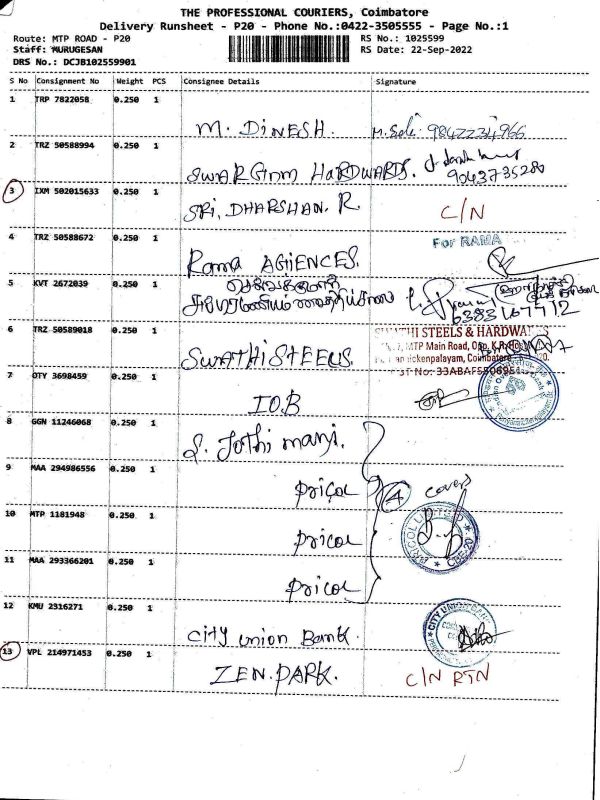 THE PROFESSIONAL COURIERS, Coimbatore
Delivery Runsheet - P20 - Phone No.:0422-3505555 - Page No.:1
Route: MTP ROAD - P20 RS No.: 1025599
Staff: MURUGESAN RS Date: 22-Sep-2022
DRS No.: DCJB102559901
S No Consignment No Weight PCS Consignee Details Signature
1 TRP 7822058 0.250 1
M. DINESH. 9842234966
2 TRZ 50588994 0.250 1
HARDWARDS. 9043735280
3 IXM 502015633 0.250 1
SRI. DHARSHAN. R. C/N
4 TRZ 50588672 0.250 1 For RAMA
Rama AGIENCES.
5 KVT 2672039 0.250 1
6383167712
6 TRZ 50589018 0.250 1 SWATHI STEELS & HARDWARES
MTP Main Road, Opp. K.R.
SWATHI STEELS. Coimbatore
7 OTY 3698459 0.250 1
I.O.B
8 GGN 11246068 0.250 1
S. Jothi mani.
9 MAA 294986556 0.250 1
Pricol 4 covers
10 MTP 1181948 0.250 1 PRICOL LIMITED CBE-20
Pricol
11 MAA 293366201 0.250 1
Pricol
12 KMU 2316271 0.250 1 CITY UNION BANK
City union Bank.
13 VPL 214971453 0.250 1
ZEN. PARK. C/N RTN